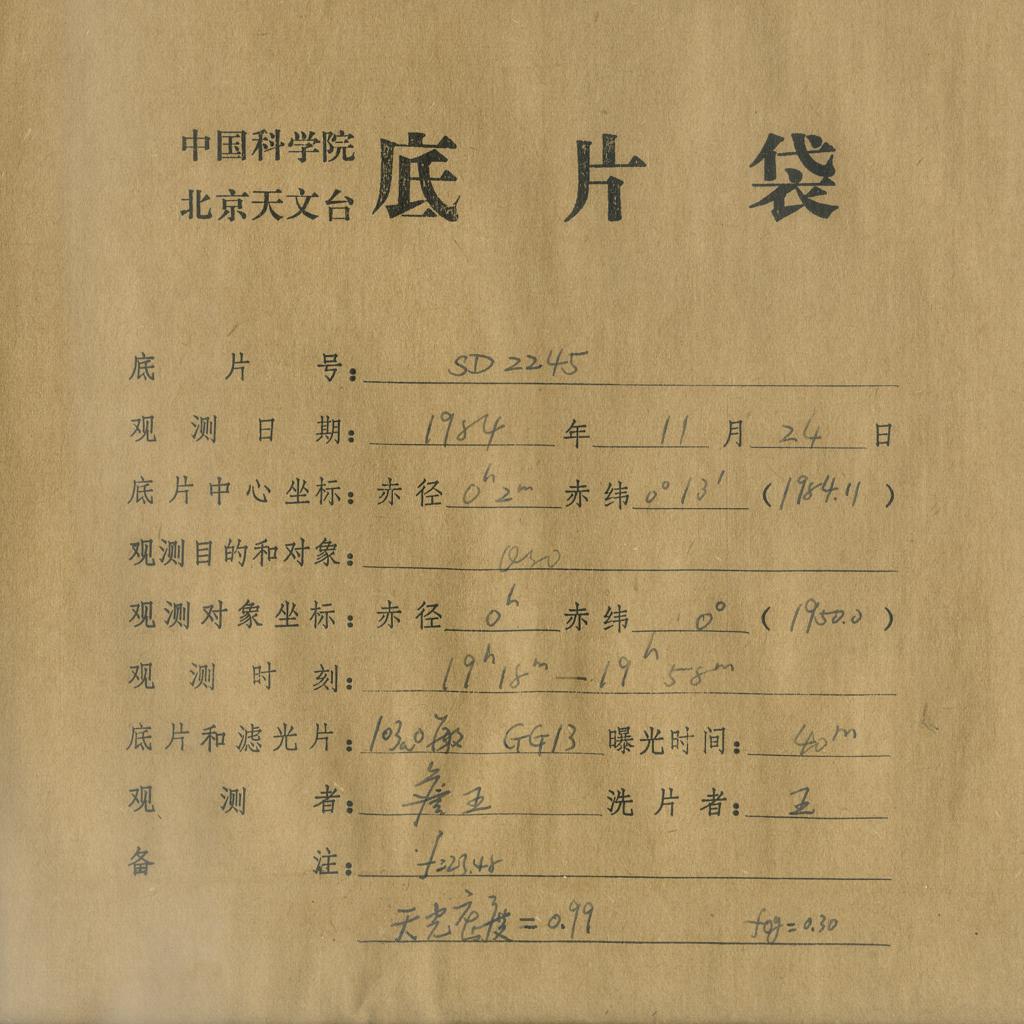 中国科学院
北京天文台
底片袋
底片号：SD 2245
观测日期：1984年11月24日
底片中心坐标：赤径 0h2m 赤纬 0°13′（1984.11）
观测目的和对象：QSO
观测对象坐标：赤径 0h 赤纬 0°（1950.0）
观测时刻：19h18m—19h58m
底片和滤光片：103aO敏 GG13 曝光时间：40m
观测者：詹 王 洗片者：王
备注：f=23.48
天光密度=0.99 fog=0.30